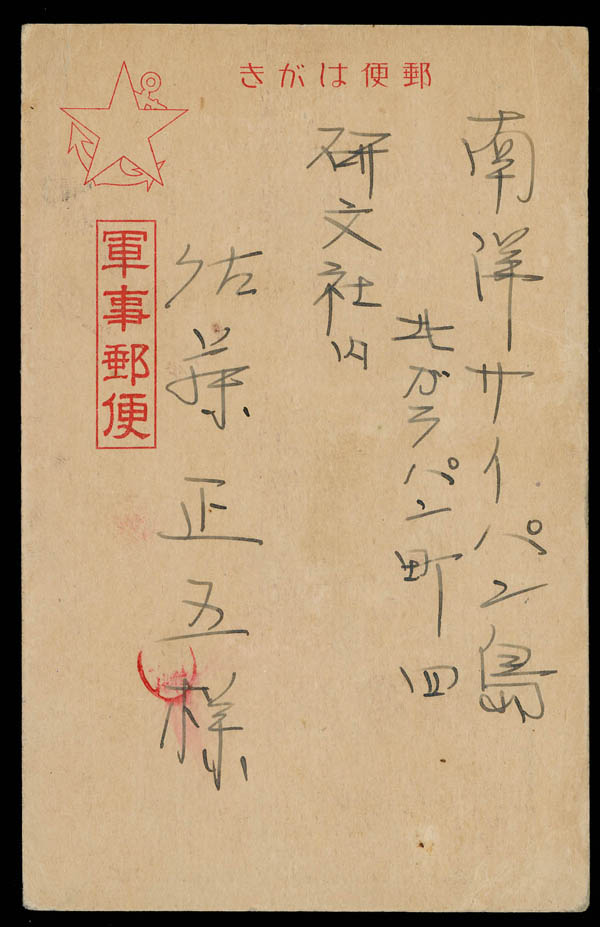 郵便はがき
南洋サイパン島
北ガラパン町四
研文社内
佐藤正五様
軍事郵便